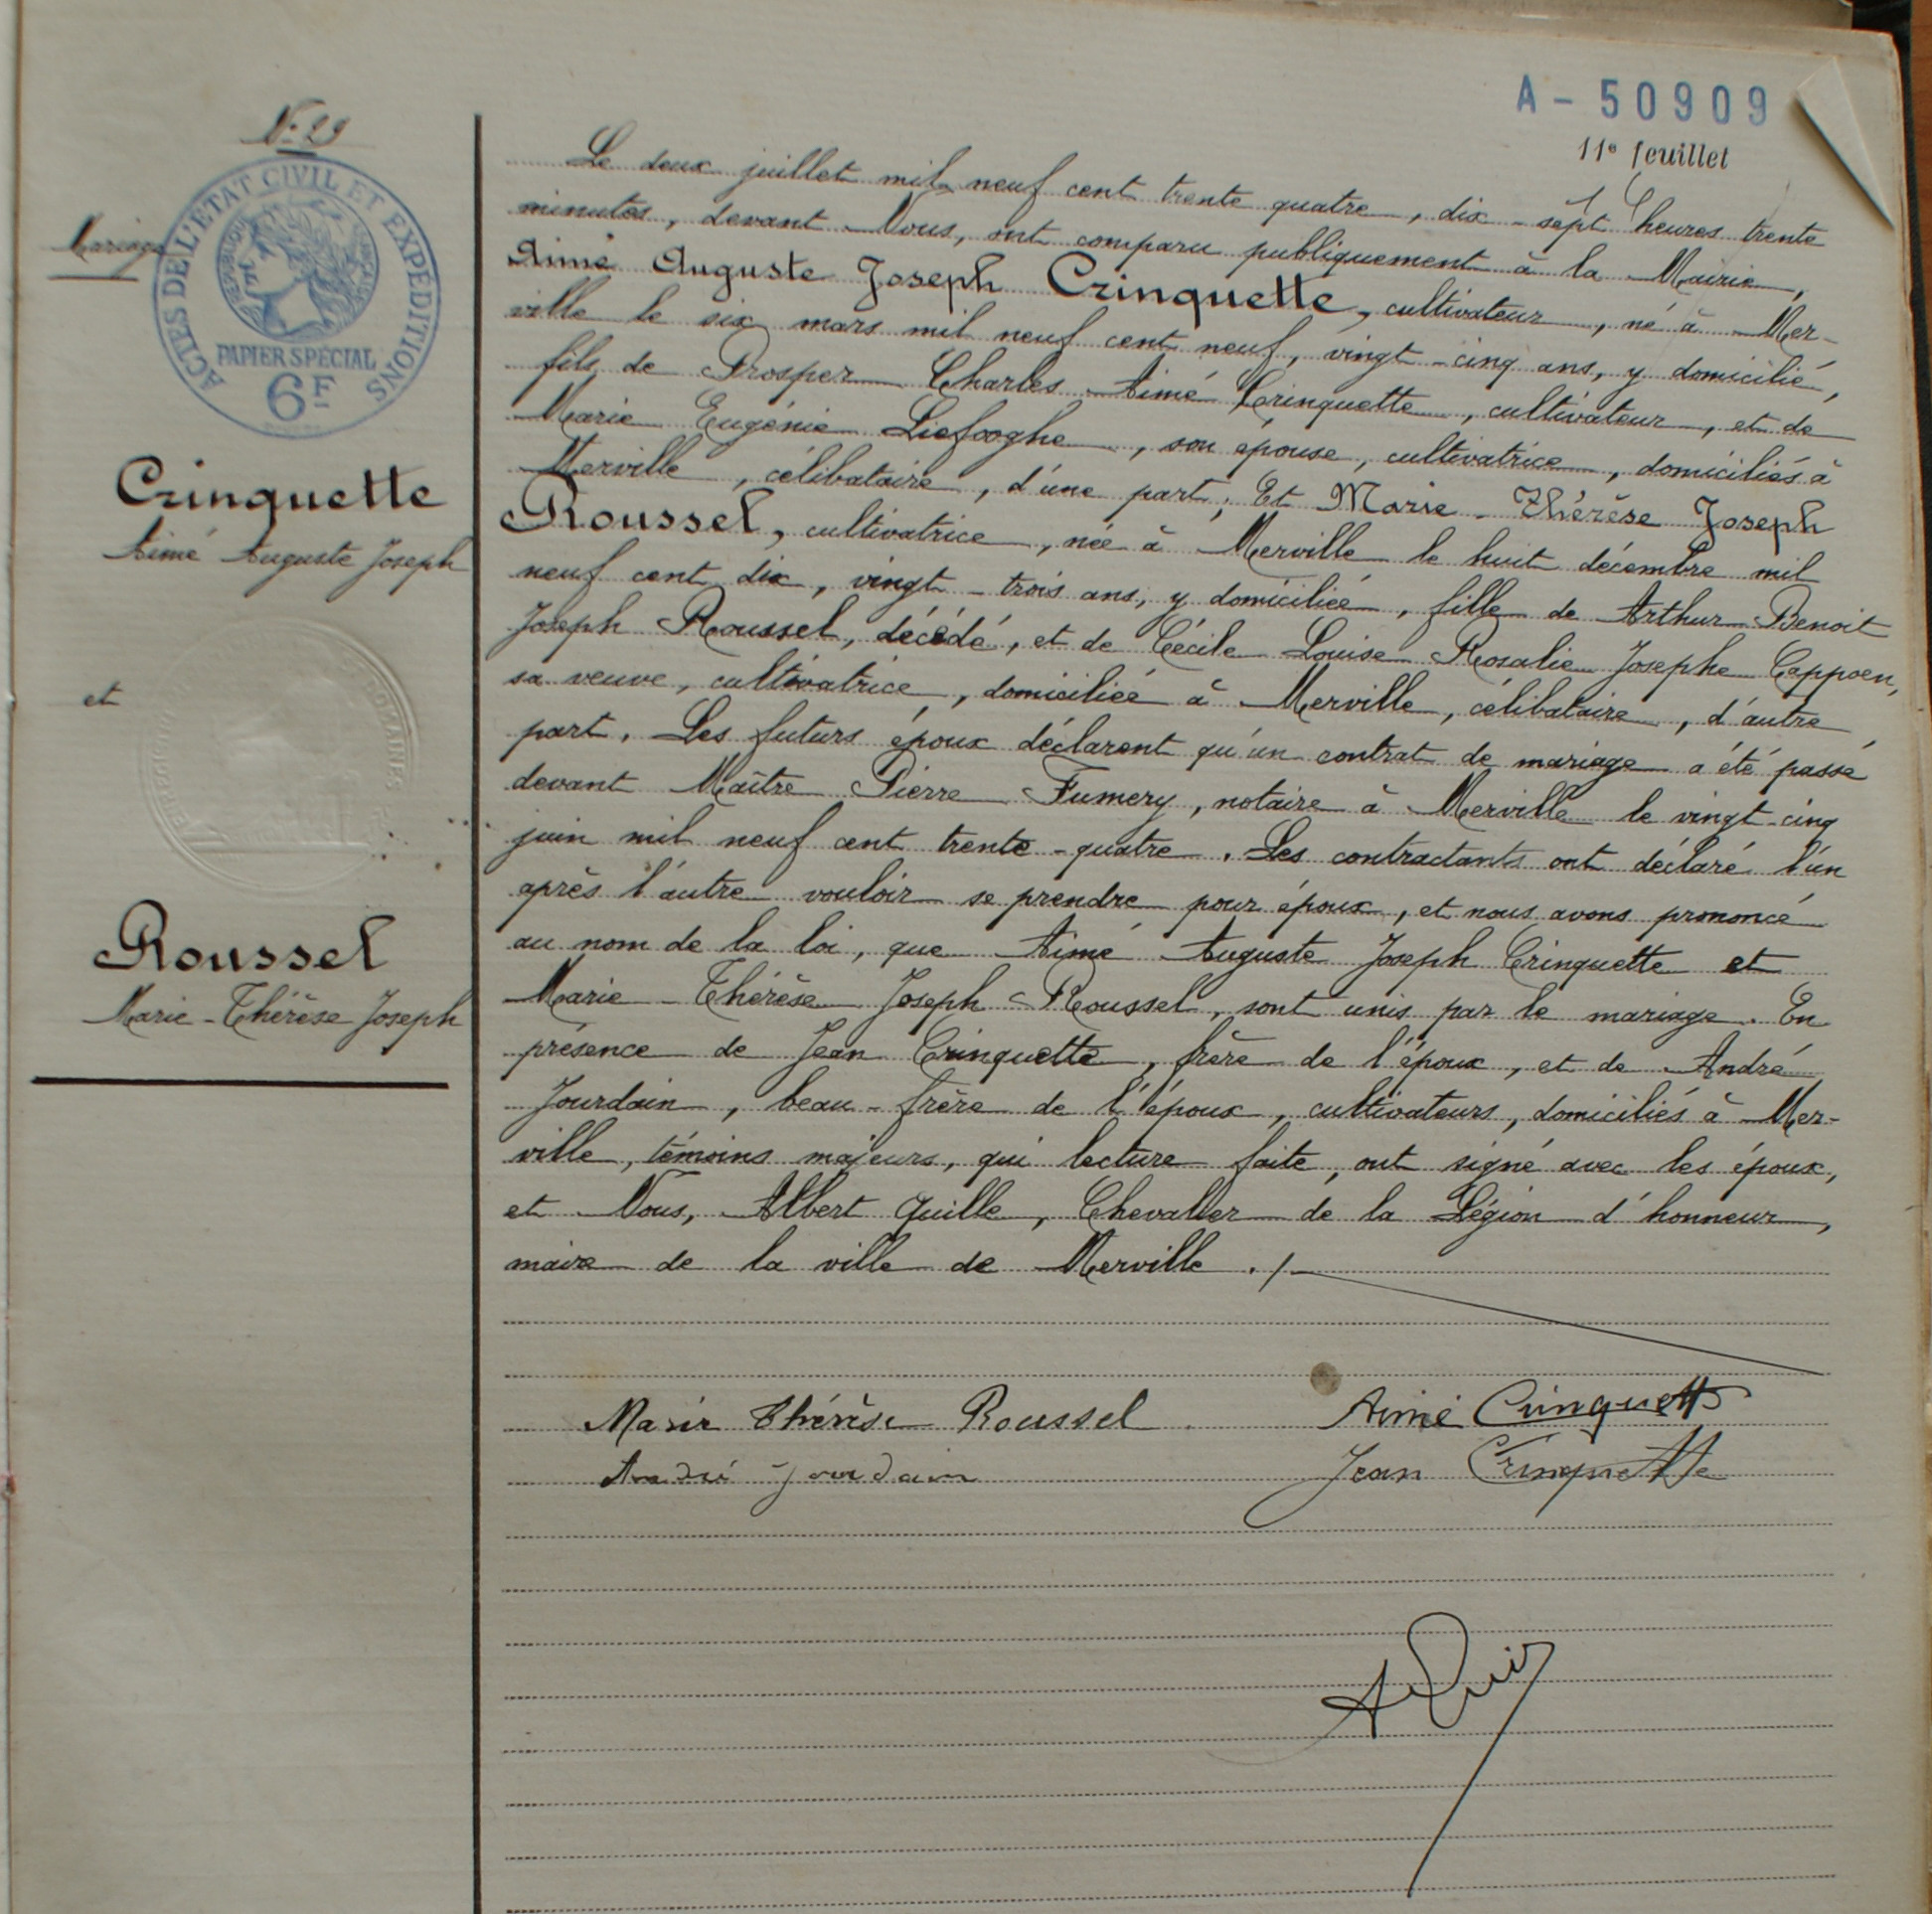 A - 50909
11e feuillet
N° 29
Mariage
ACTES DE L'ETAT CIVIL ET EXPÉDITIONS
REPUBLIQUE FRANÇAISE
PAPIER SPÉCIAL
6F
Crinquette
Aimé Auguste Joseph
et
Roussel
Marie-Thérèse Joseph
Le deux juillet mil neuf cent trente quatre, dix-sept heures trente
minutes, devant Nous, ont comparu publiquement à la Mairie,
Aimé Auguste Joseph Crinquette, cultivateur, né à Mer-
ville le six mars mil neuf cent neuf, vingt-cinq ans, y domicilié,
fils de Prosper Charles Aimé Crinquette, cultivateur, et de
Marie Eugénie Liefooghe, son épouse, cultivatrice, domiciliés à
Merville, célibataire, d'une part; Et Marie-Thérèse Joseph
Roussel, cultivatrice, née à Merville le huit décembre mil
neuf cent dix, vingt-trois ans, y domiciliée, fille de Arthur Benoit
Joseph Roussel, décédé, et de Cécile Louise Rosalie Josephe Cappoen,
sa veuve, cultivatrice, domiciliée à Merville, célibataire, d'autre
part. Les futurs époux déclarent qu'un contrat de mariage a été passé
devant Maître Pierre Fumery, notaire à Merville le vingt-cinq
juin mil neuf cent trente-quatre. Les contractants ont déclaré l'un
après l'autre vouloir se prendre pour époux, et nous avons prononcé
au nom de la loi, que Aimé Auguste Joseph Crinquette et
Marie-Thérèse Joseph Roussel, sont unis par le mariage. En
présence de Jean Crinquette, frère de l'époux, et de André
Jourdain, beau-frère de l'époux, cultivateurs, domiciliés à Mer-
ville, témoins majeurs, qui lecture faite, ont signé avec les époux,
et Nous, Albert Quille, Chevalier de la Légion d'honneur,
maire de la ville de Merville ./.
Marie Thérèse Roussel
Aimé Crinquette
André Jourdain
Jean Crinquette